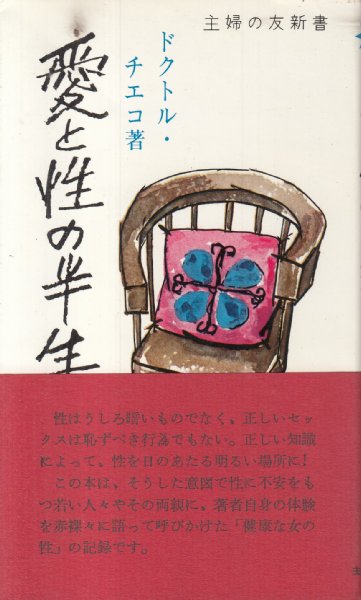 主婦の友新書
ドクトル・
チエコ著
愛と性の半生
性はうしろ暗いものでなく、正しいセッ
クスは恥ずべき行為でもない。正しい知識
によって、性を日のあたる明るい場所に!
この本は、そうした意図で性に不安をも
つ若い人々やその両親に、著者自身の体験
を赤裸々に語って呼びかけた「健康な女の
性」の記録です。